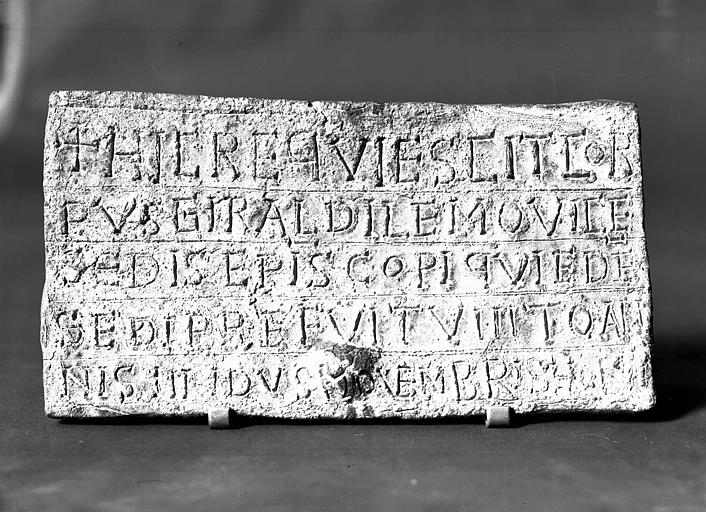 + HIC REQVIESCIT COR
PVS GIRALDI LEMOVICE
SEDIS EPISCOPI QVI EIDE
SEDI PREFVIT VIII TO AN
NIS III IDVS NOVEMBRIS